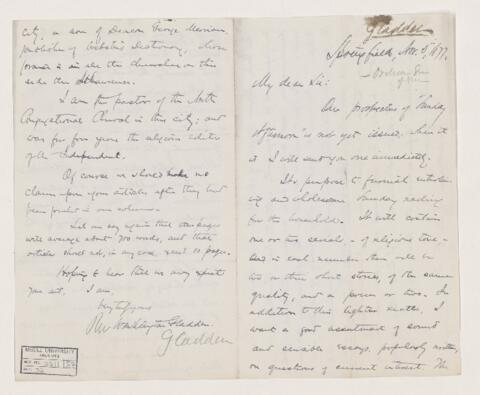 Gladden
Springfield, Nov. 5, 1877.
My dear Sir:
Our prospectus of "Sunday
Afternoon" is not yet issued. When it
is I will send you one immediately.
Its purpose to furnish
ing and wholesome Sunday reading
for the household. It will contain
one or two serials - of religious tone -
and in each number there will be
two or three short stories, of the same
quality, and a poem or two. In
addition to this lighter matter, I
want a good assortment of sound
and sensible essays, popularly written,
on questions of current interest. The
city, a son of Deacon George Merriam,
publisher of Webster's Dictionary, whose
is in all the churches on this
side the
I am the pastor of the North
Congregational Church in this city, and
was for four years the religious editor
of the Independent.
Of course we should make no
claim upon your articles after they have
been printed in our columns.
Let me say again that our pages
will average about 700 words, and that
articles should not, in any case, exceed 10 pages.
Hoping to hear that we may expect
you aid, I am,
Very truly yours
Rev Washington Gladden.
Gladden
McGILL UNIVERSITY